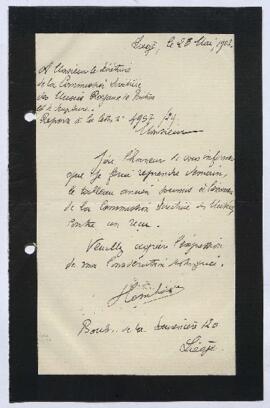 Liège, le 28 Mai, 1902.
A Monsieur le
de la Commission
des Musées Royaux de
et de Sculpture.
Réponse à la lettre n° 4957
Monsieur
J'ai l'honneur de vous informer
que je ferai reprendre demain,
le tableau ancien soumis à
de la Commission Directrice des Musées
contre un reçu.
Veuillez agréer l'expression
de ma considération distinguée.
Boul. de la Sauvenière 120
Liège